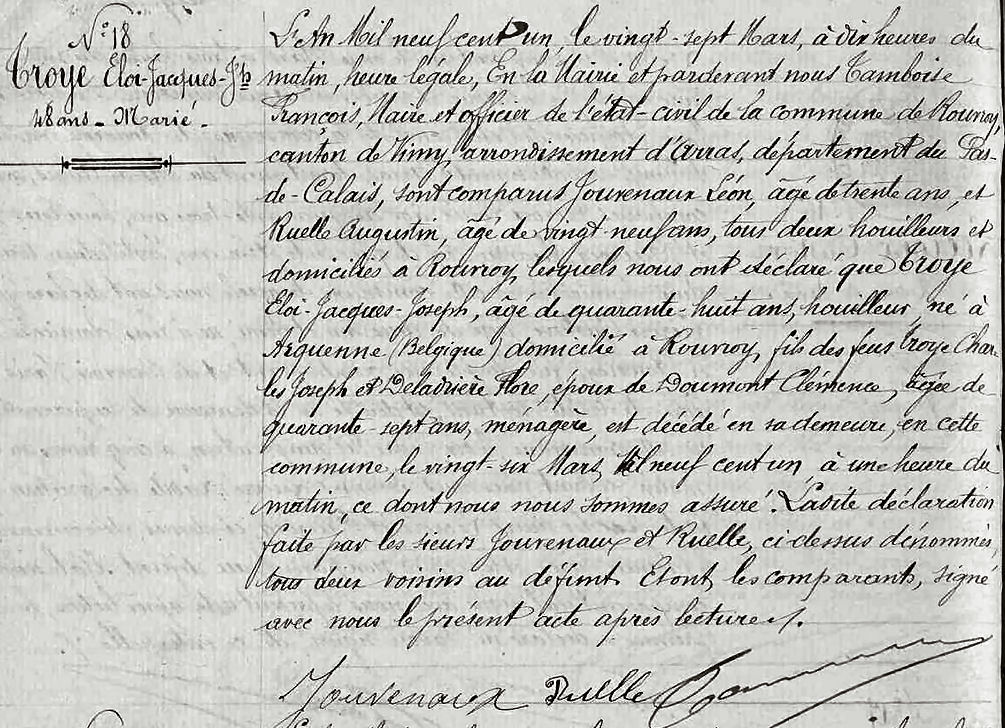 N° 18
Troye Eloi-Jacques-Jph
48 ans - Marié -
L'An Mil neuf cent un, le vingt-sept Mars, à dix heures du
matin, heure légale, En la Mairie et pardevant nous Tamboise
François, Maire et officier de l'état-civil de la commune de Rouvroy,
canton de Vimy, arrondissement d'Arras, département du Pas-
de-Calais, sont comparus Jouvenaux Léon, âgé de trente ans, et
Ruelle Augustin, âgé de vingt-neuf ans, tous deux houilleurs et
domiciliés à Rouvroy, lesquels nous ont déclaré que Troye
Eloi-Jacques-Joseph, âgé de quarante-huit ans, houilleur, né à
Arquenne (Belgique) domicilié à Rouvroy, fils des feus Troye Char-
les Joseph et Deladrière Flore, époux de Doumont Clémence, âgée de
quarante-sept ans, ménagère, est décédé en sa demeure, en cette
commune, le vingt-six Mars, Mil neuf cent un à une heure du
matin, ce dont nous nous sommes assuré. Ladite déclaration
faite par les sieurs Jouvenaux et Ruelle, ci-dessus dénommés,
tous deux voisins au défunt. Et ont, les comparants, signé
avec nous le présent acte après lecture./.
Jouvenaux Ruelle